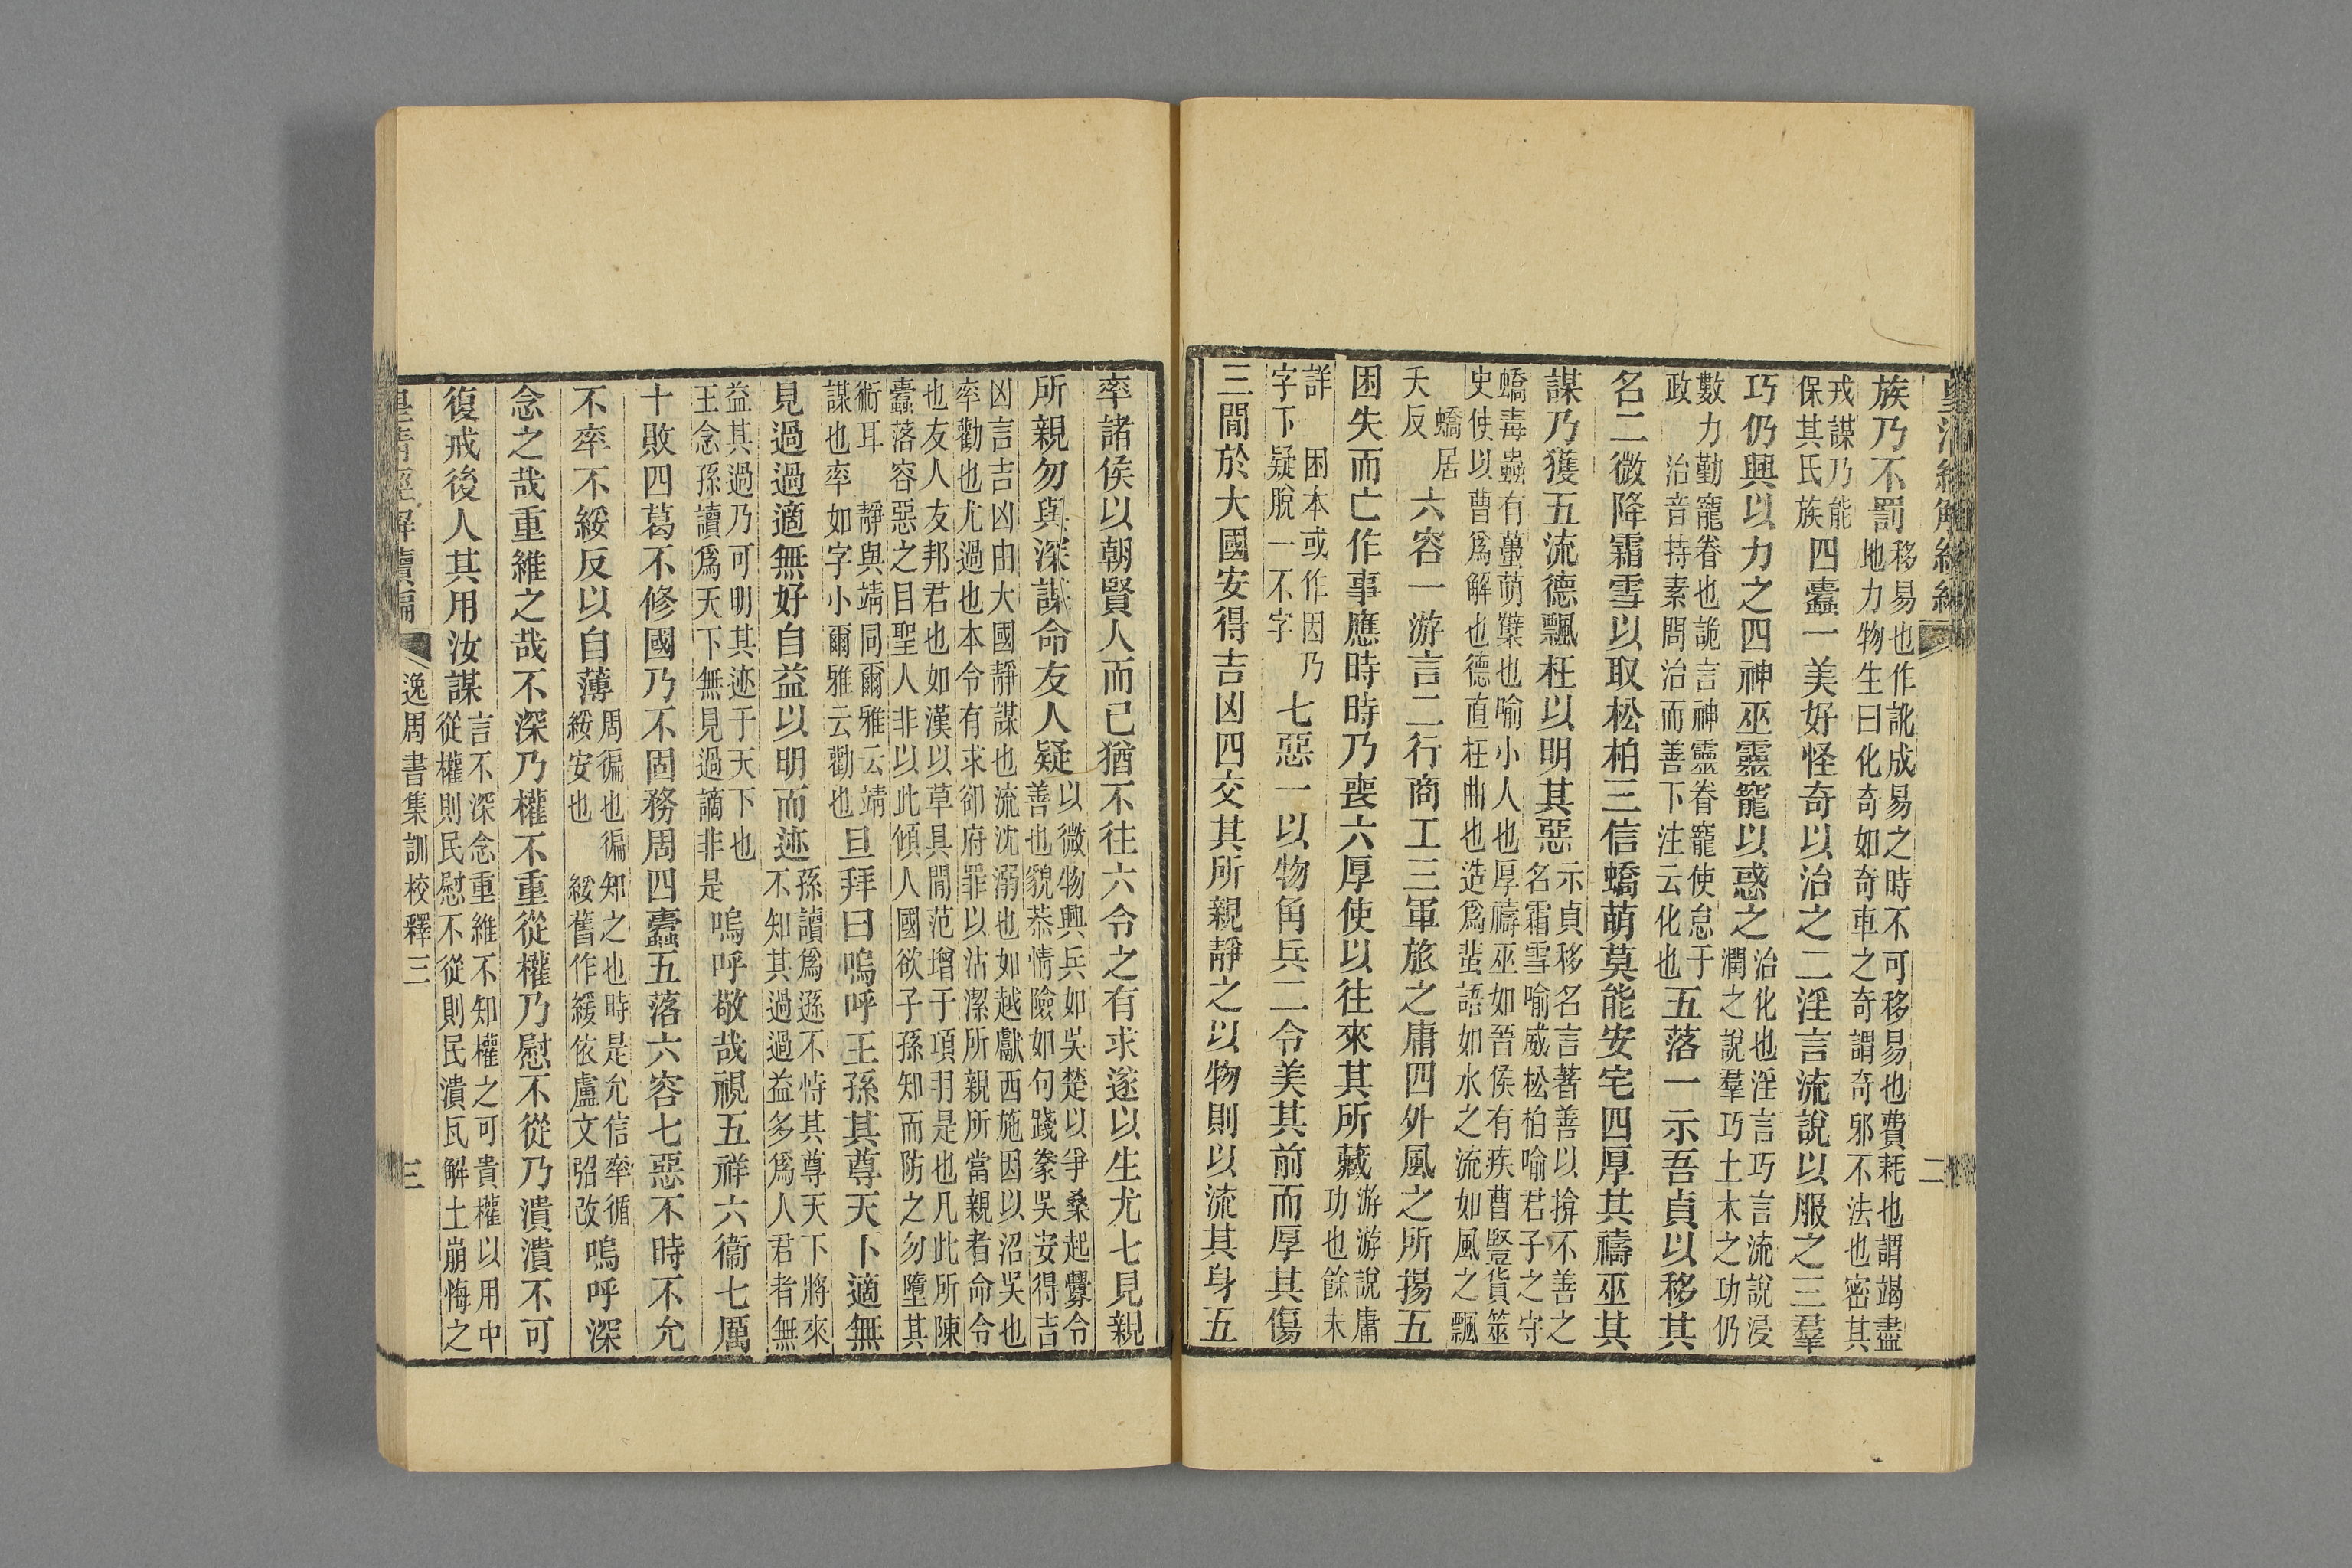 皇清經解續編 二
族乃不罰
移易也作訛成易之時不可移易也費耗也謂竭盡
地力物生曰化奇如奇車之奇謂奇邪不法也密其
戎謀乃能
保其氏族
四蠹一美好怪奇以治之二淫言流說以服之三羣
巧仍興以力之四神巫靈寵以惑之
治化也淫言巧言流說浸
潤之說羣巧土木之功仍
數力勤寵眷也詭言神靈眷寵使怠于
政 治音持素問治而善下注云化也
五落一示吾貞以移其
名二微降霜雪以取松柏三信蟜萌莫能安宅四厚其禱巫其
謀乃獲五流德飄枉以明其惡
示貞移名言著善以揜不善之
名霜雪喻威松柏喻君子之守
蟜毒蟲有蠆萌櫱也喻小人也厚禱巫如晉侯有疾曹豎貨筮
史使以曹爲解也德直枉曲也造爲蜚語如水之流如風之飄
蟜居
夭反
六容一游言二行商工三軍旅之庸四外風之所揚五
困失而亡作事應時時乃喪六厚使以往來其所藏
游游說庸
功也餘未
詳 困本或作因乃
字下疑脫一不字
七惡一以物角兵二令美其前而厚其傷
三閒於大國安得吉凶四交其所親靜之以物則以流其身五
率諸侯以朝賢人而已猶不往六令之有求遂以生尤七見親
所親勿與深謀命友人疑
以微物興兵如吳楚以爭桑起釁令
善也貌恭情險如句踐豢吳安得吉
凶言吉凶由大國靜謀也流沈溺也如越獻西施因以沼吳也
率勸也尤過也本令有求卻府罪以沽潔所親所當親者命令
也友人友邦君也如漢以草具閒范增于項羽是也凡此所陳
蠹落容惡之目聖人非以此傾人國欲子孫知而防之勿墮其
術耳 靜與靖同爾雅云靖
謀也率如字小爾雅云勸也
旦拜曰嗚呼王孫其尊天卜適無
見過過適無好自益以明而迹
孫讀爲遜不恃其尊天下將來
不知其過過益多爲人君者無
益其過乃可明其迹于天下也
王念孫讀爲天下無見過謫非是
嗚呼敬哉視五祥六衞七厲
十敗四葛不修國乃不固務周四蠹五落六容七惡不時不允
不率不綏反以自薄
周徧也徧知之也時是允信率循
綏安也 綏舊作緩依盧文弨改
嗚呼深
念之哉重維之哉不深乃權不重從權乃慰不從乃潰潰不可
復戒後人其用汝謀
言不深念重維不知權之可貴權以用中
從權則民慰不從則民潰瓦解土崩悔之
皇清經解續編 逸周書集訓校釋三 三